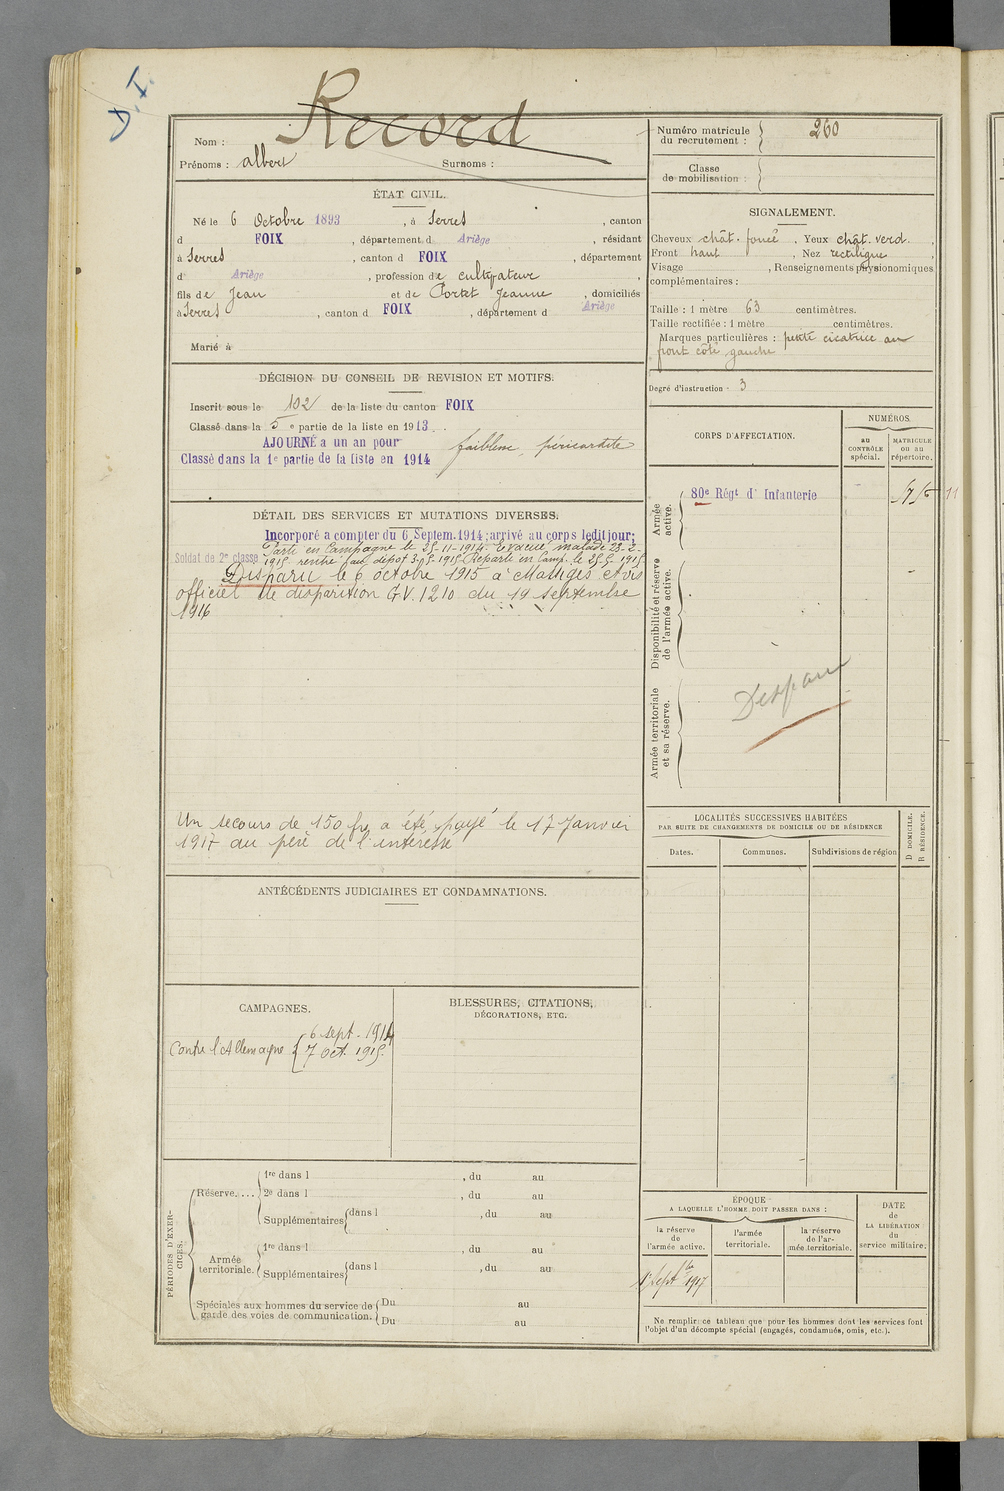 D. I.
Nom : Record
Prénoms : albert Surnoms :
Numéro matricule du recrutement : 260
Classe de mobilisation :
ÉTAT CIVIL.
Né le 6 Octobre 1893, à Serres, canton
d FOIX, département d Ariège, résidant
à Serres, canton d FOIX, département
d Ariège, profession de cultivateur,
fils de Jean et de Portet Jeanne, domiciliés
à Serres, canton d FOIX, département d Ariège
Marié à
SIGNALEMENT.
Cheveux chât. foncé. Yeux chât. verd.,
Front haut, Nez rectiligne,
Visage, Renseignements physionomiques
complémentaires :
Taille : 1 mètre 63 centimètres.
Taille rectifiée : 1 mètre centimètres.
Marques particulières : petite cicatrice au
front côté gauche
Degré d'instruction 3
DÉCISION DU CONSEIL DE REVISION ET MOTIFS.
Inscrit sous le 102 de la liste du canton FOIX
Classé dans la 5e partie de la liste en 1913.
AJOURNÉ a un an pour faiblesse, péricardite
Classé dans la 1e partie de la liste en 1914
CORPS D'AFFECTATION.
NUMÉROS.
au CONTRÔLE spécial.
MATRICULE ou au répertoire.
Armée active.
80e Régt d'Infanterie
11
Disponibilité et réserve de l'armée active.
Armée territoriale et sa réserve.
Disparu
DÉTAIL DES SERVICES ET MUTATIONS DIVERSES.
Incorporé a compter du 6 Septem. 1914; arrivé au corps ledit jour;
Soldat de 2e classe Parti en Campagne le 25-11-1914. Evacué malade 23-2-
1915 rentré au dépôt 3-5-1915. Reparti en Camp. le 25-5-1915.
Disparu le 6 octobre 1915 à Massiges avis
officiel de disparition G.V. 1210 du 19 septembre
1916
Un secours de 150 frs a été payé le 17 Janvier
1917 au père de l'intéressé
LOCALITÉS SUCCESSIVES HABITÉES
PAR SUITE DE CHANGEMENTS DE DOMICILE OU DE RÉSIDENCE
Dates.
Communes.
Subdivisions de région
D DOMICILE.
R RÉSIDENCE.
ANTÉCÉDENTS JUDICIAIRES ET CONDAMNATIONS.
CAMPAGNES.
Contre l'Allemagne { 6 sept - 1914
7 Oct. 1915.
BLESSURES, CITATIONS,
DÉCORATIONS, ETC.
PÉRIODES D'EXERCICES.
Réserve....
1re dans l, du au
2e dans l, du au
Supplémentaires dans l, du au
Armée territoriale.
1re dans l, du au
Supplémentaires dans l, du au
Spéciales aux hommes du service de garde des voies de communication.
Du au
Du au
ÉPOQUE
A LAQUELLE L'HOMME DOIT PASSER DANS :
la réserve de l'armée active.
l'armée territoriale.
la réserve de l'armée territoriale.
DATE de LA LIBÉRATION du service militaire.
1er Septbre 1917
Ne remplir ce tableau que pour les hommes dont les services font
l'objet d'un décompte spécial (engagés, condamnés, omis, etc.).